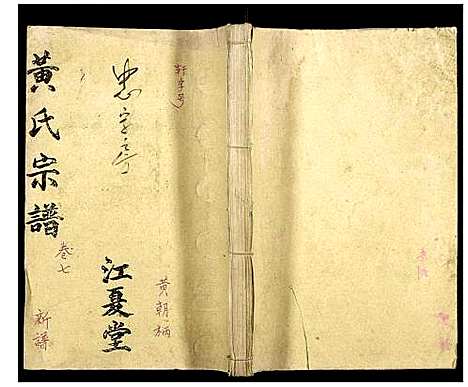 黃氏宗譜
卷七
新譜
忠字号
江夏堂
黄朝柄